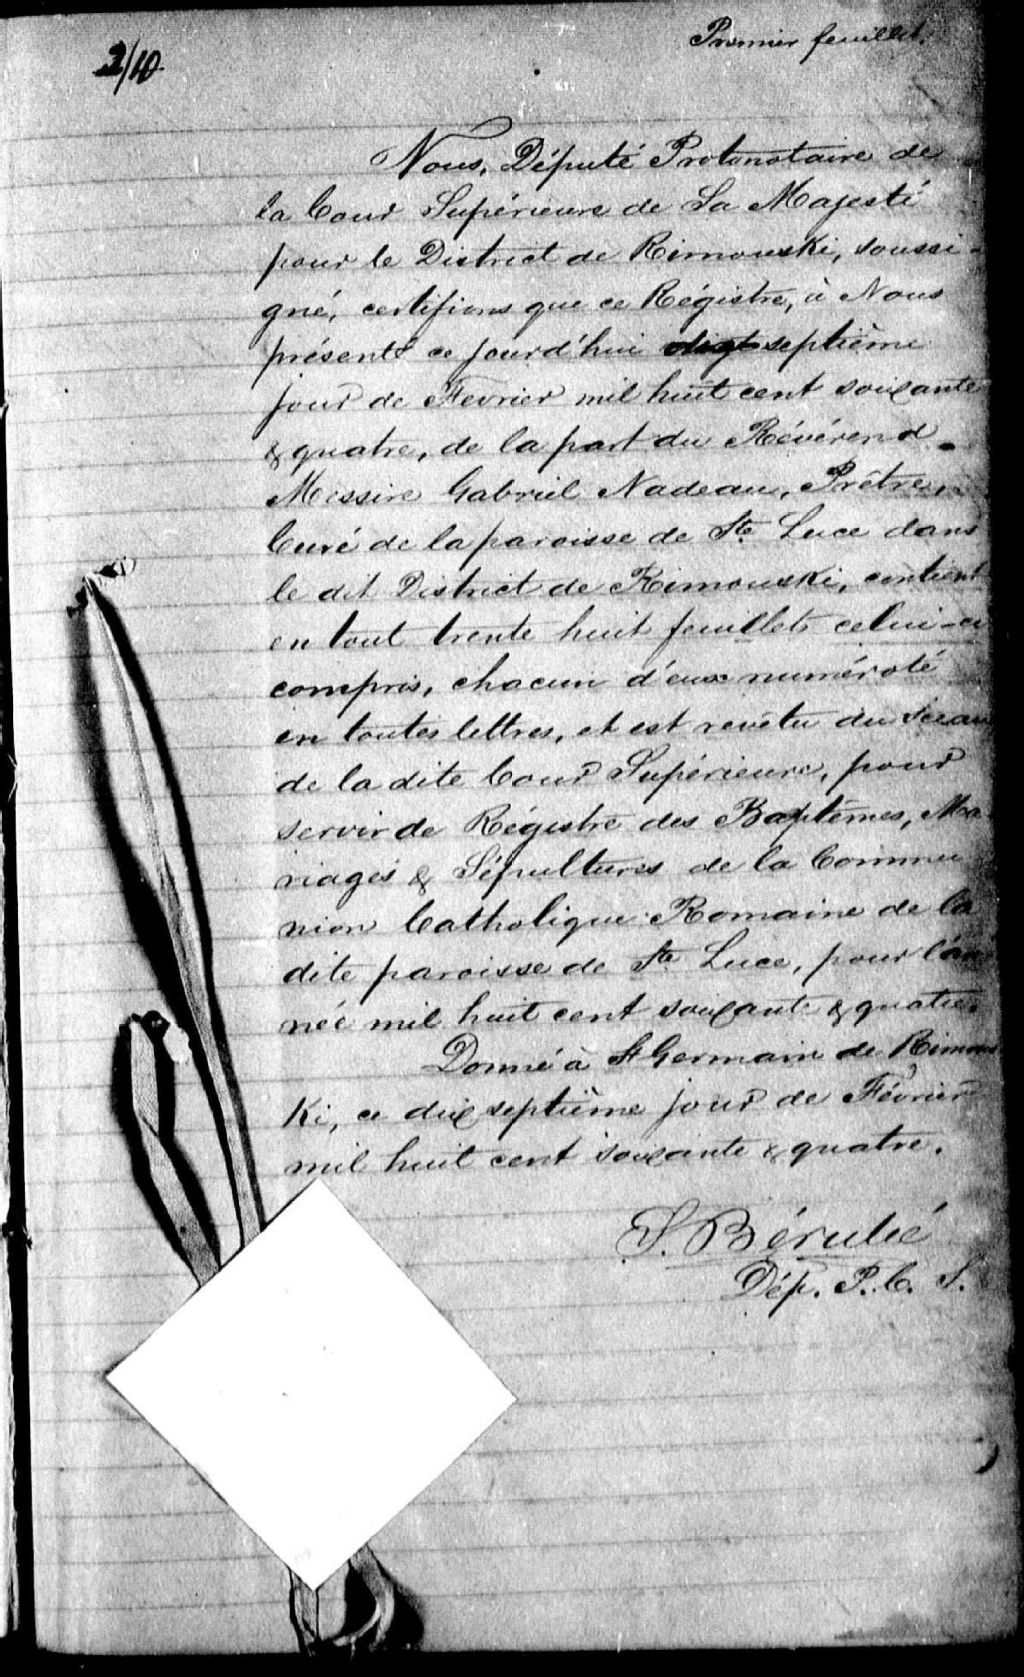 Premier feuillet.
2/10
Nous, Député Protonotaire de
la Cour Supérieure de Sa Majesté
pour le District de Rimouski, soussi-
gné, certifions que ce Régistre, à Nous
présenté ce jourd'hui septième
jour de Fevrier mil huit cent soixante
& quatre, de la part du Révérend
Messire Gabriel Nadeau, Prêtre,
Curé de la paroisse de Ste Luce dans
le dit District de Rimouski, contient
en tout trente huit feuillets celui-ci
compris, chacun d'eux numéroté
en toutes lettres, et est revêtu du sceau
de la dite Cour Supérieure, pour
servir de Régistre des Baptêmes, Ma
riages & Sépultures de la Commu
nion Catholique Romaine de la
dite paroisse de Ste Luce, pour l'an
née mil huit cent soixante & quatre.
Donné à St Germain de Rimous
ki, ce dix septième jour de Février
mil huit cent soixante & quatre.
Dép. P. C. S.